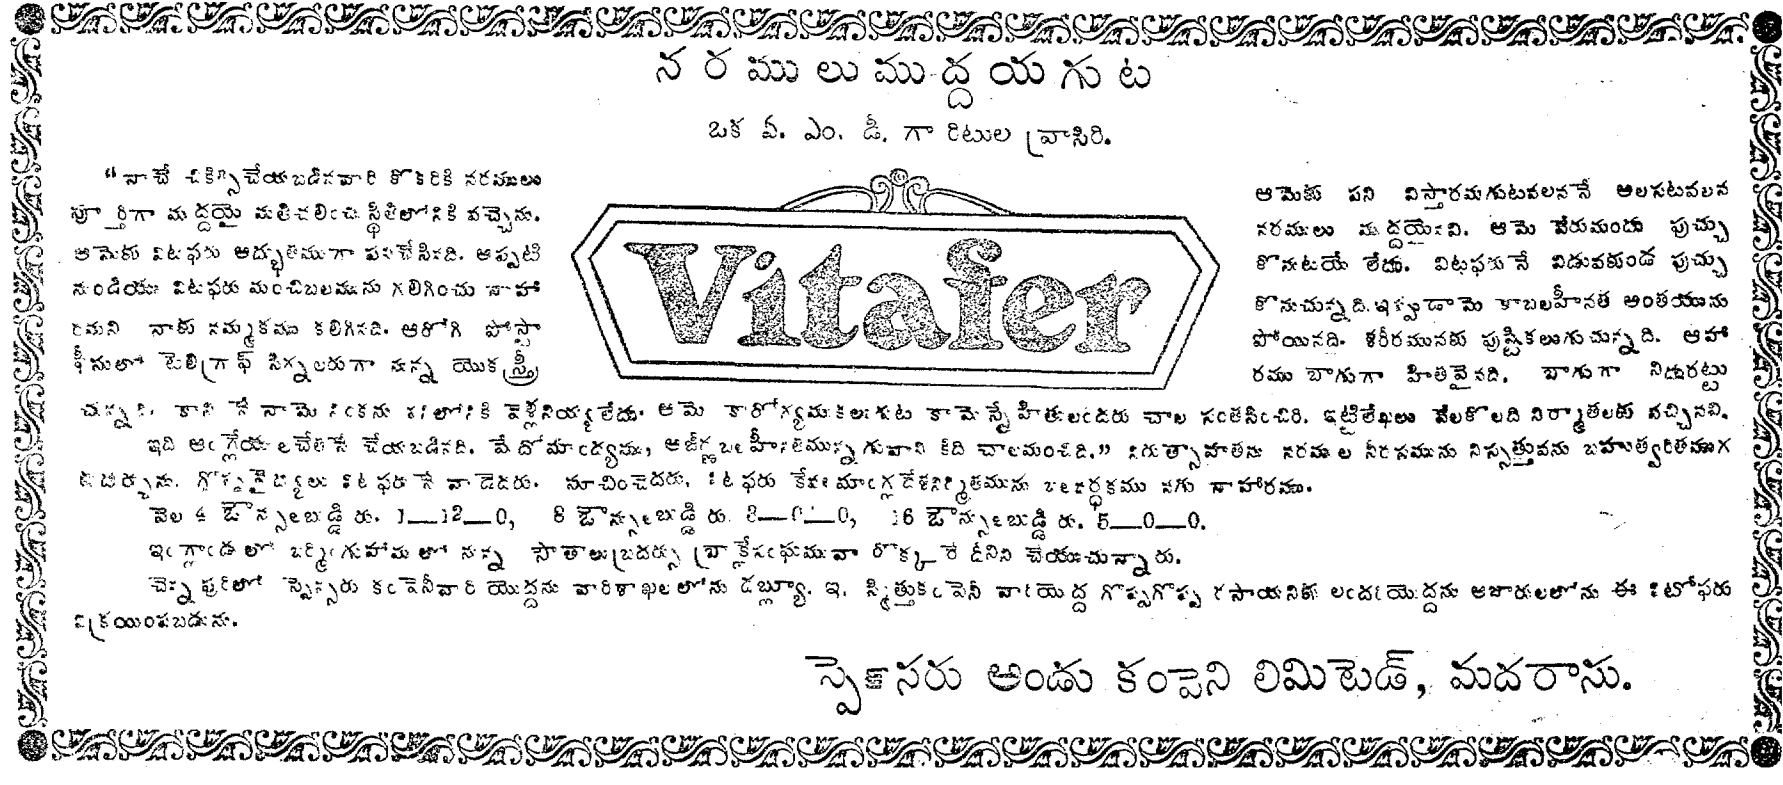 నరములుముద్దయగుట
ఒక వి. ఎం. డీ. గా రిటుల వ్రాసిరి.
“నాచే చికిస్సిచేయబడినవారి కొకరికి నరములు
పూర్తిగా మద్దయై మతిచలించి స్థితిలోనికి వచ్చెను.
ఆమెకు విటఫరు అద్భుతముగా పనిచేసినది. అప్పటి
నుండియు విటఫరు మంచిబలమును గలిగించు నాహా
రమని నాకు నమ్మకము కలిగినది. ఆరోగి పోస్టా
ఫీసులో టెలిగ్రాఫ్ సిగ్నలరుగా నున్న యొకస్త్రీ
Vitafer
ఆమెకు పని విస్తారమగుటవలననే అలసటవలన
నరములు ముద్దయైనవి. ఆమె వేరుమందు పుచ్చు
కొనుటయే లేదు. విటఫరునే విడువకుండ పుచ్చు
కొనుచున్నది. ఇప్పుడామె కాబలహీనత అంతయును
పోయినది. శరీరమునకు పుష్టికలుగుచున్నది. ఆహా
రము బాగుగా హితవైనది. బాగుగా నిదురట్టు
చున్నది. కాని నే నామె నింకను పనిలోనికి వెళ్లనియ్యలేదు. ఆమె కారోగ్యముకలుగుట కామెస్నేహితులందరు చాల సంతసించిరి. ఇట్టిలేఖలు వేలకొలది నిర్మాతలకు వచ్చినవి.
ఇది ఆంగ్లేయులచేతనే చేయబడినది. మేదోమాంద్యము, అజీర్ణబలహీనతమున్నగువాని కిది చాలమంచిది.” నిగుత్సాహతను నరముల నీరసమును నిస్సత్తువను బహుత్వరితముగ
కుదుర్చును. గొప్పవైద్యులు విటఫరునే వాడెదరు. సూచించెదరు. విటఫరు కేవలమాంగ్లదేశనిర్మితమును బలవర్ధకము నగు నాహారము.
వెల 4 ఔన్సులబుడ్డి రు. 1—12—0, 8 ఔన్సులబుడ్డి రు. 3—0—0, 16 ఔన్సులబుడ్డి రు. 5—0—0.
ఇంగ్లాండులో బర్మింగుహాములో నున్న సాతాలుబ్రదర్సు వా రొక్కరే దీనిని చేయుచున్నారు.
చెన్నపురిలో స్పెన్సరు కంపెనీవారి యొద్దను వారిశాఖలలోను డబ్ల్యూ. ఇ. స్మిత్తుకంపెనీ వారియొద్ద గొప్పగొప్ప రసాయనికు లందరియొద్దను బజారులలోను ఈ విటోఫరు
విక్రయింపబడును.
స్పెన్సరు అండు కంపెని లిమిటెడ్, మదరాసు.